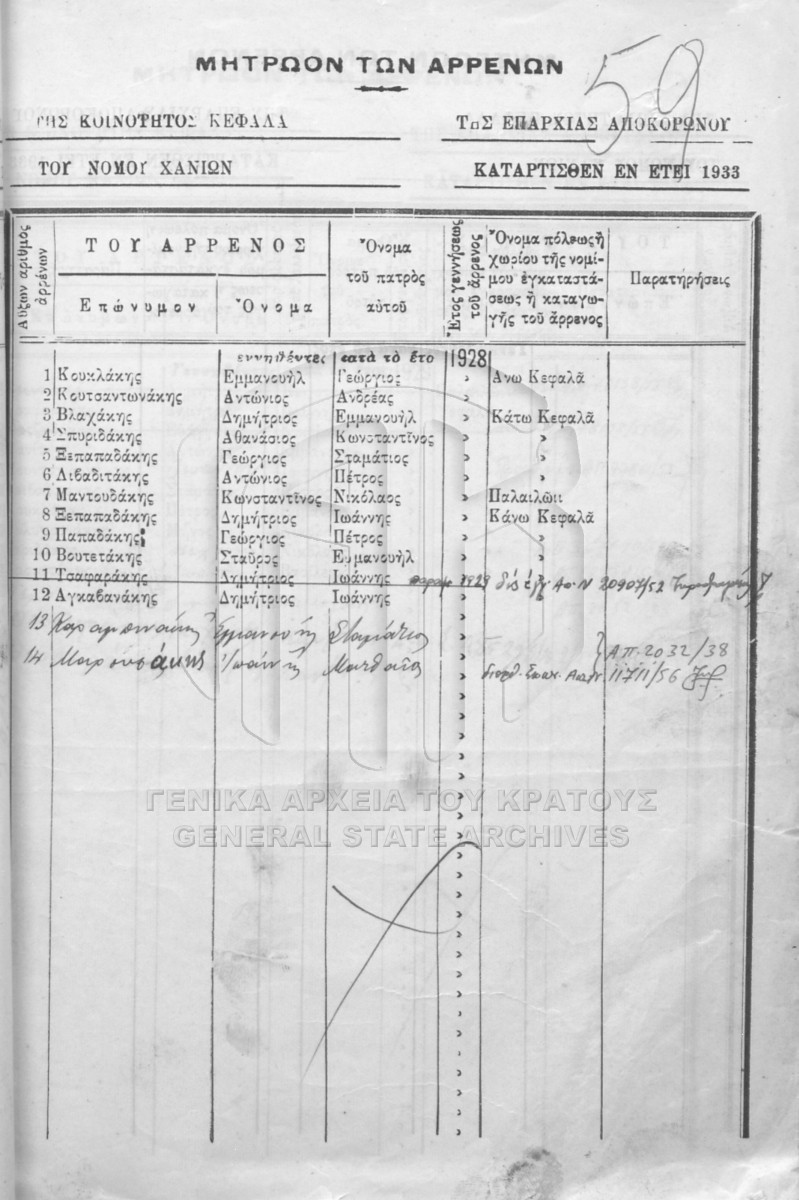 59
ΜΗΤΡΩΟΝ ΤΩΝ ΑΡΡΕΝΩΝ
ΤΗΣ ΚΟΙΝΟΤΗΤΟΣ ΚΕΦΑΛΑ ΤηΣ ΕΠΑΡΧΙΑΣ ΑΠΟΚΟΡΩΝΟΥ
ΤΟΥ ΝΟΜΟΥ ΧΑΝΙΩΝ ΚΑΤΑΡΤΙΣΘΕΝ ΕΝ ΕΤΕΙ 1933
Αὔξων ἀριθμος ἀρρένων
ΤΟΥ ΑΡΡΕΝΟΣ
Ἐπώνυμον Ὄνομα
Ὄνομα
τοῦ πατρὸς
αὐτοῦ
Ἔτος γεννήσεως
τοῦ ἄρρενος
Ὄνομα πόλεως ἢ
χωρίου τῆς νομί-
μου ἐγκαταστά-
σεως ἢ καταγω-
γῆς τοῦ ἄρρενος
Παρατηρήσεις
εννηθέντες κατὰ τὸ ἔτο 1928
1 Κουκλάκης Εμμανουὴλ Γεώργιος » Ανω Κεφαλᾶ
2 Κουτσαντωνάκης Αντώνιος Ανδρέας » »
3 Βλαχάκης Δημήτριος Εμμανουὴλ » Κάτω Κεφαλᾶ
4 Σπυριδάκης Αθανάσιος Κωνσταντῖνος » »
5 Ξεπαπαδάκης Γεώργιος Σταμάτιος » »
6 Λιβαδιτάκης Αντώνιος Πέτρος » »
7 Μαντουδάκης Κωνσταντῖνος Νικόλαος » Παλαιλῶιι
8 Ξεπαπαδάκης Δημήτριος Ιωάννης » Κάνω Κεφαλᾶ
9 Παπαδάκης Γεώργιος Πέτρος » »
10 Βουτετάκης Σταῦρος Εμμανουὴλ » »
11 Τσαφαράκης Δημήτριος Ιωάννης 1929 20907/52
12 Αγκαβανάκης Δημήτριος Ιωάννης »
13 Εμμανουήλ Σταμάτιος
14 Μαρουσάκης Ιωάννης Ματθαῖος
Α.Π. 2032/38
11711/56
ΓΕΝΙΚΑ ΑΡΧΕΙΑ ΤΟΥ ΚΡΑΤΟΥΣ
GENERAL STATE ARCHIVES